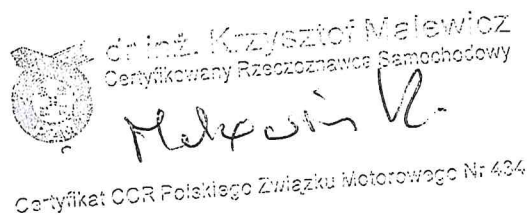 dr inż. Krzysztof Malewicz
Certyfikowany Rzeczoznawca Samochodowy
Malewicz K.
Certyfikat CCR Polskiego Związku Motorowego Nr 434